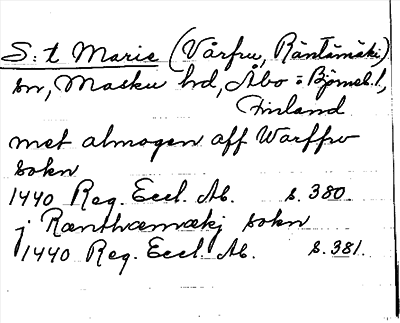 S:t Marie (Vårfru, Räntämäki)
sn, Masku hd, Åbo = Björneb. l,
Finland
met almogen aff Warffrv
sokn
1440 Reg. Eccl. Ab. s. 380
j Rænthæmækj sokn
1440 Reg. Eccl. Ab. s. 381.